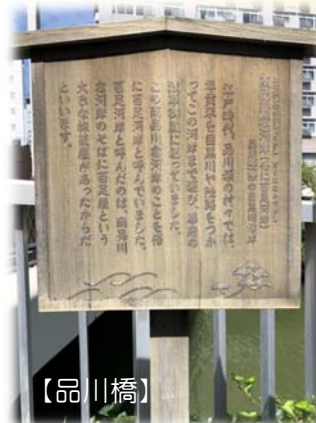 江戸時代、品川領の村々では、
年貢米を目黒川や陸路をつか
ってこの河岸まで運び、幕府の
浅草御蔵に送っていました。
この南品川宿河岸のことを俗
に百足河岸と呼んでいました。
百足河岸と呼んだのは、南品川
宿河岸のそばに百足屋という
大きな旅籠屋があったからだ
といいます。
【品川橋】